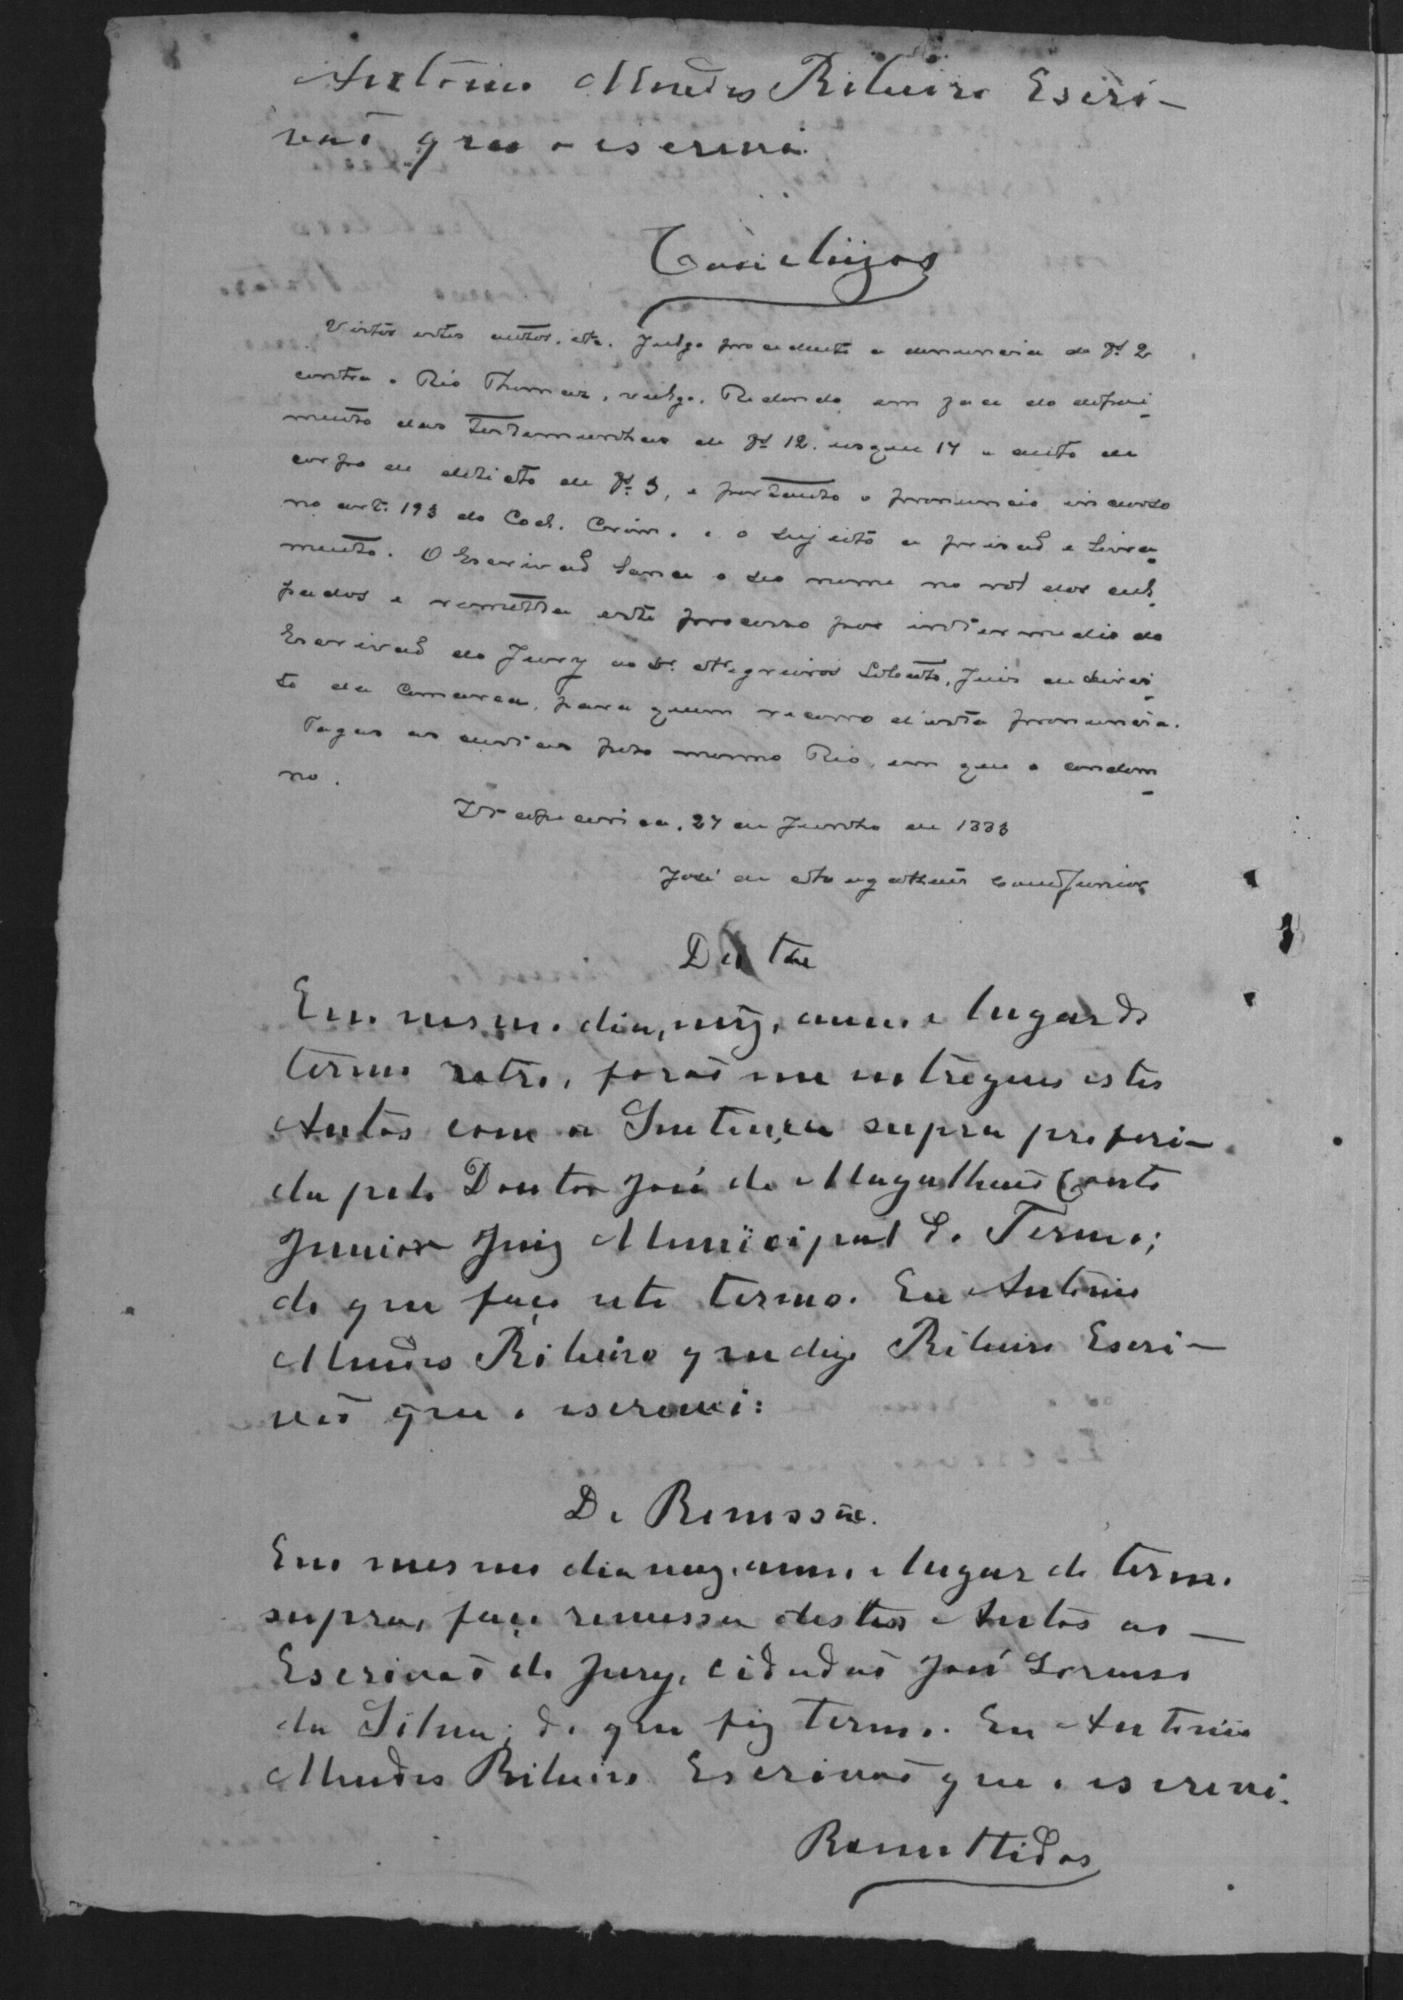 Antonio Mendes Ribeiro Escri-
vaõ que o escrevi.
Conclusos
Vistos estes autos, etc. Julgo procedente a denuncia de fs 2
contra o Réo Thomaz, vulgo, Redondo, em face do depoi-
mento das testemunhas de fs 12 usque 17 e auto de
corpo de delicto de fs. 3, e portanto o pronuncio incurso
no art. 193 do Cod. Crim. e o sujeito a prisaõ e livra-
mento. O Escrivaõ lance o seo nome no rol dos cul-
pados e remetta este processo por intermedio do
Escrivaõ do Jury ao Dr. Negreiros Lobato, Juis de direi-
to da Comarca, para quem recorro d'esta pronuncia.
Pague as custas pelo mesmo Réo, em que o condem-
no.
Itapecerica, 27 de Junho de 1883
José de Magalhaẽs Couto Junior
Data
Em mesmo dia, mez, anno e lugar do
termo retro, foraõ me entregues estes
Autos com a Sentença supra proferi-
da pelo Doutor José de Magalhaẽs Couto
Junior Juiz Municipal do Termo;
do que faço este termo. Eu Antonio
Mendes Ribeiro que digo Ribeiro Escri-
vaõ que o escrevi:
De Remessa.
Em mesmo dia mez, anno e lugar do termo
supra, faço remessa destes Autos ao
Escrivaõ do Jury, cidadaõ José Lorenso
da Silva; do que fiz termo. Eu Antonio
Mendes Ribeiro Escrivaõ que o escrevi.
Remettidos